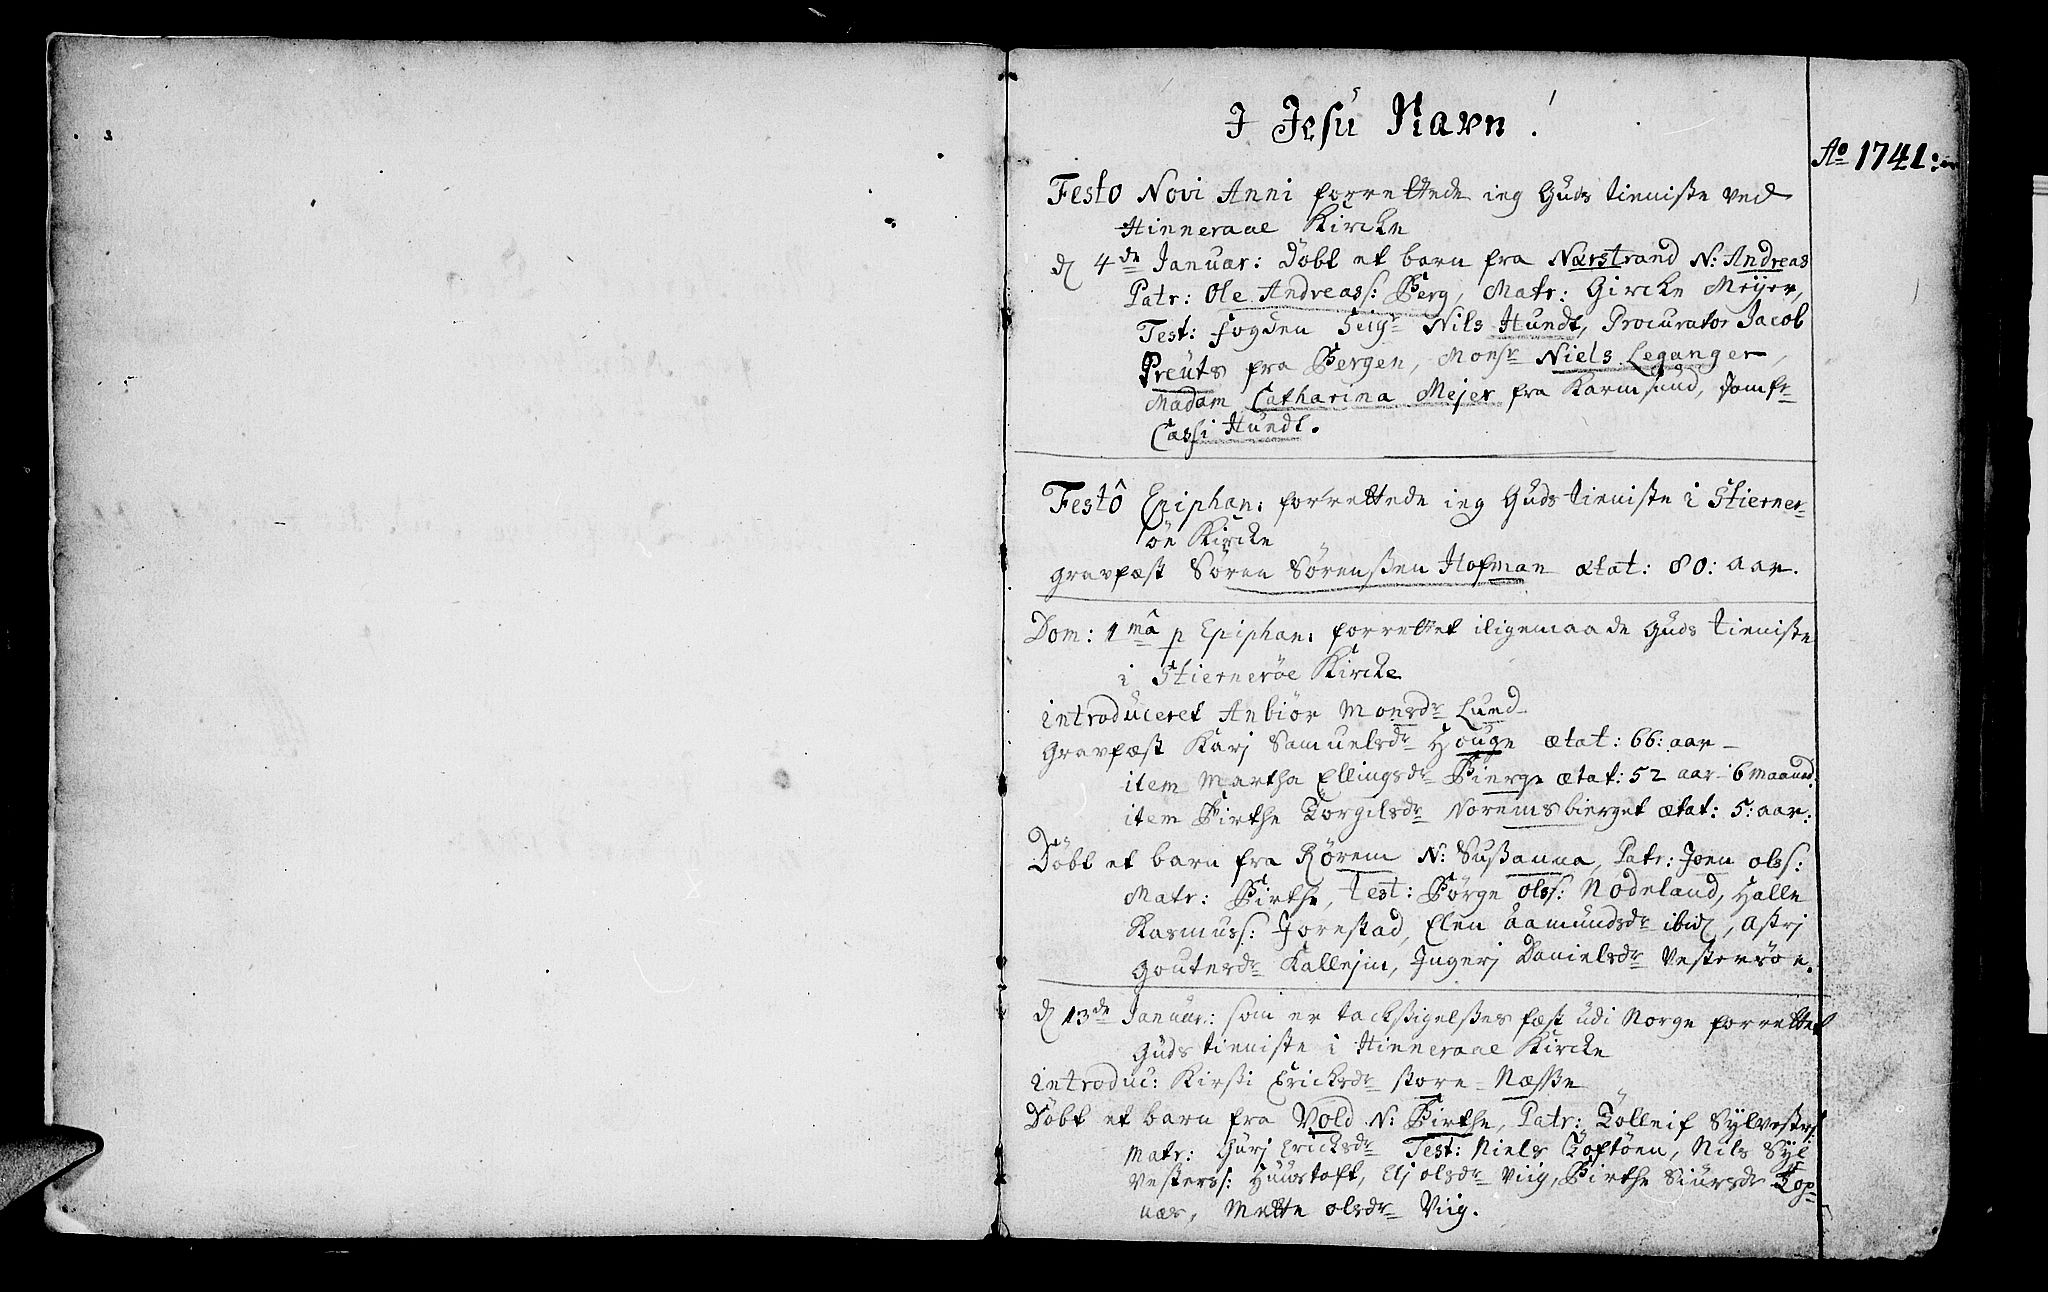 I Jesu Navn!
Ao 1741:
Festo Novi Anni forrettede ieg Guds tieniste ved
Hinneraae Kirche
d 4de Januar: döbt et barn fra Nærstrand N: Andreas
Patr: Ole Andreass: Berg, Matr: Gircke Meijer,
Test: fogden Seigr Nils Hundt, Procurator Jacob
Preuts fra Bergen, Monsr Niels Leganger,
Madam Catharina Mejer fra Karmsund, Jomfr
Cassi Hundt.
Festô Epiphan: forrettede ieg Guds tieniste i Stierner-
öe Kircke
gravfæst Sören Sörenssen Hofman ætat: 80: aar.
Dom: 1mâ p Epiphan: forrettet iligemaade Guds tieniste
i Stierneröe Kircke
introduceret Anbiör Monsdr Lund
gravfæst Karj Samuelsdr Houge ætat: 66: aar –
item Martha Ellingsdr Bierge ætat: 52 aar 6 maaned:
item Birthe Torgilsdr Noremsbierget ætat: 5: aar:
Döbt et barn fra Rörem N: Sussanna, Patr: Joen olss:
Matr: Birthe, Test: Börge olss: Nodeland, Halle
Rasmuss: Jorestad, Elen Aamundsdr ibid, Astrj
Goutesdr Kallejm, Ingerj Danielsdr Vestersöe.
d 13de Januar: som er tacksigelses fæst udi Norge forrettet
Guds tieniste i Hinneraae Kircke
introduc: Kirsti Ericksdr store-Næsse
Döbt et barn fra Vold N: Birthe, Patr: Tölleif Sylvesters:
Matr: Gurj Ericksdr Test: Niels Toftöen, Nils Syl
vesterss: Huustoft, Elj olsdr Viig, Birthe Siursdr Top-
næs, Mette olsdr Viig.